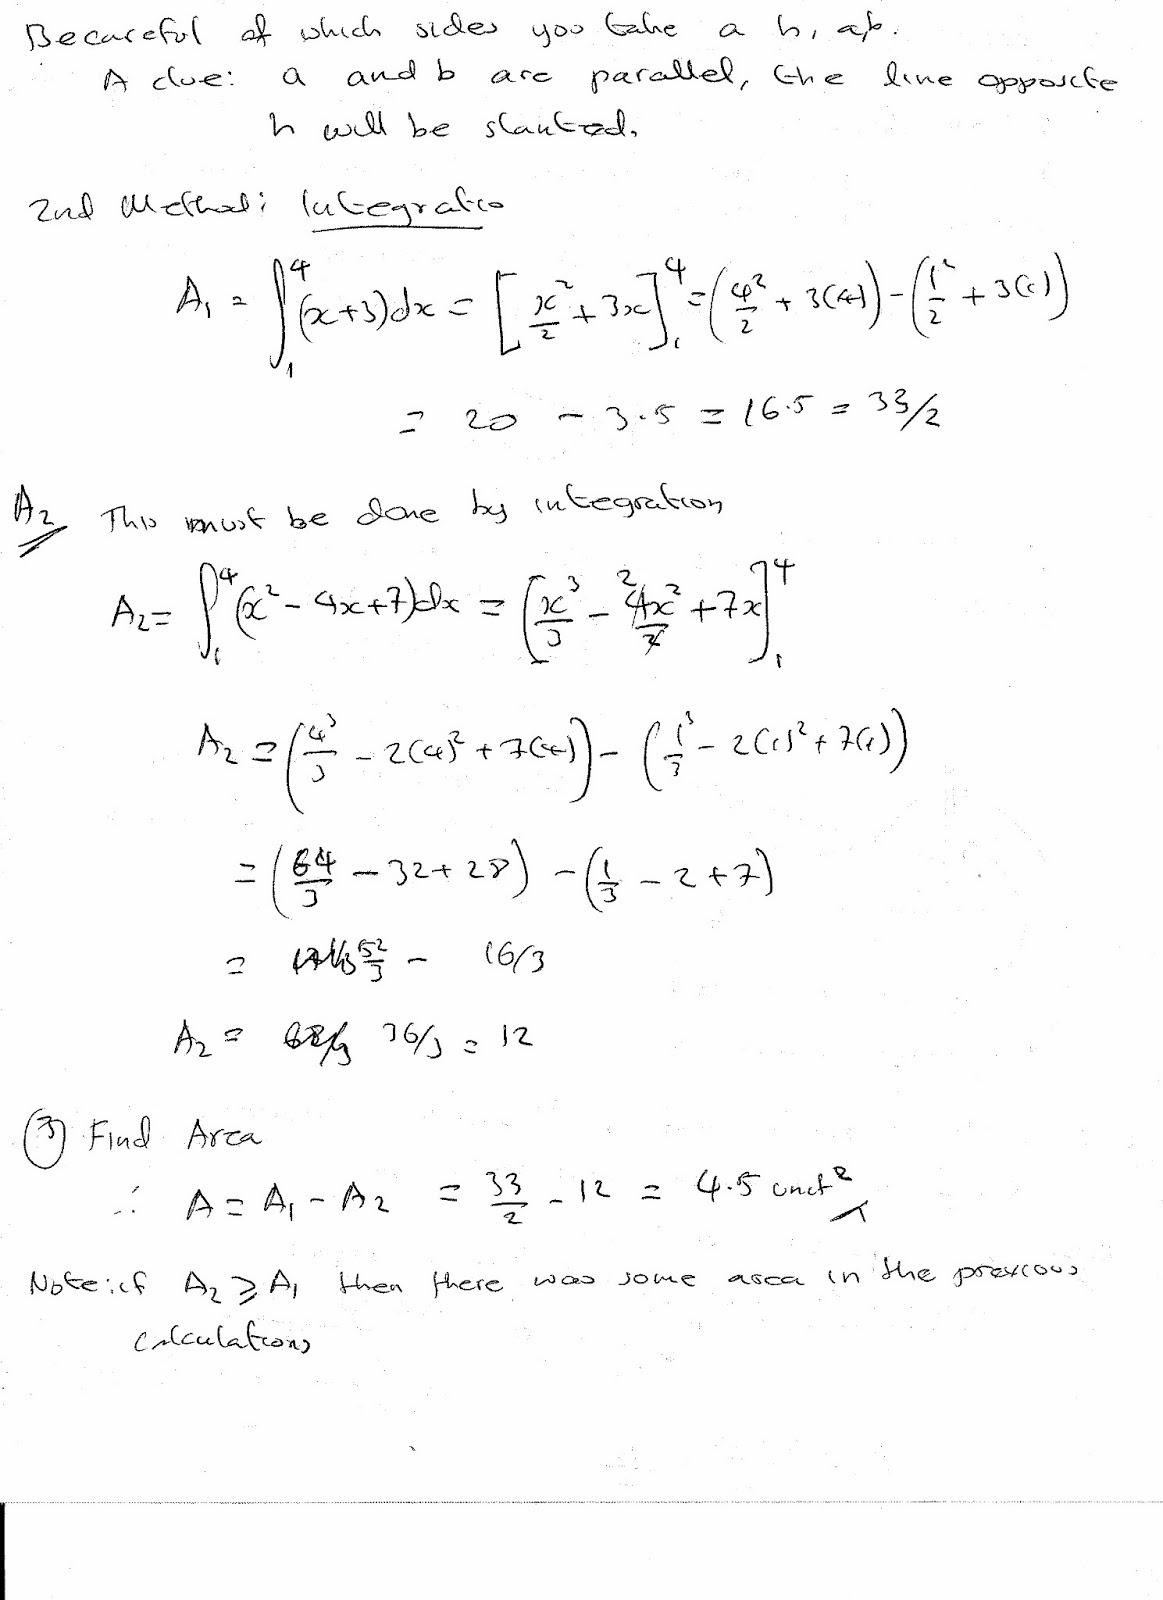 Becareful of which sides you take a h, a, b.
A clue: a and b are parallel, the line opposite
h will be slanted.
2nd Method: Integratio
A₁ = ∫₁⁴ (x+3)dx = [x²/2 + 3x]₁⁴ = (4²/2 + 3(4)) - (1²/2 + 3(1))
= 20 - 3.5 = 16.5 = 33/2
A₂ This must be done by integration
A₂ = ∫₁⁴ (x² - 4x + 7)dx = [x³/3 - ²4x²/2 + 7x]₁⁴
A₂ = (4³/3 - 2(4)² + 7(4)) - (1³/3 - 2(1)² + 7(1))
= (64/3 - 32 + 28) - (1/3 - 2 + 7)
= 52/3 - 16/3
A₂ = 36/3 = 12
③ Find Area
∴ A = A₁ - A₂ = 33/2 - 12 = 4.5 unit²
Note: if A₂ ⩾ A₁ then there was some area in the previous
calculations